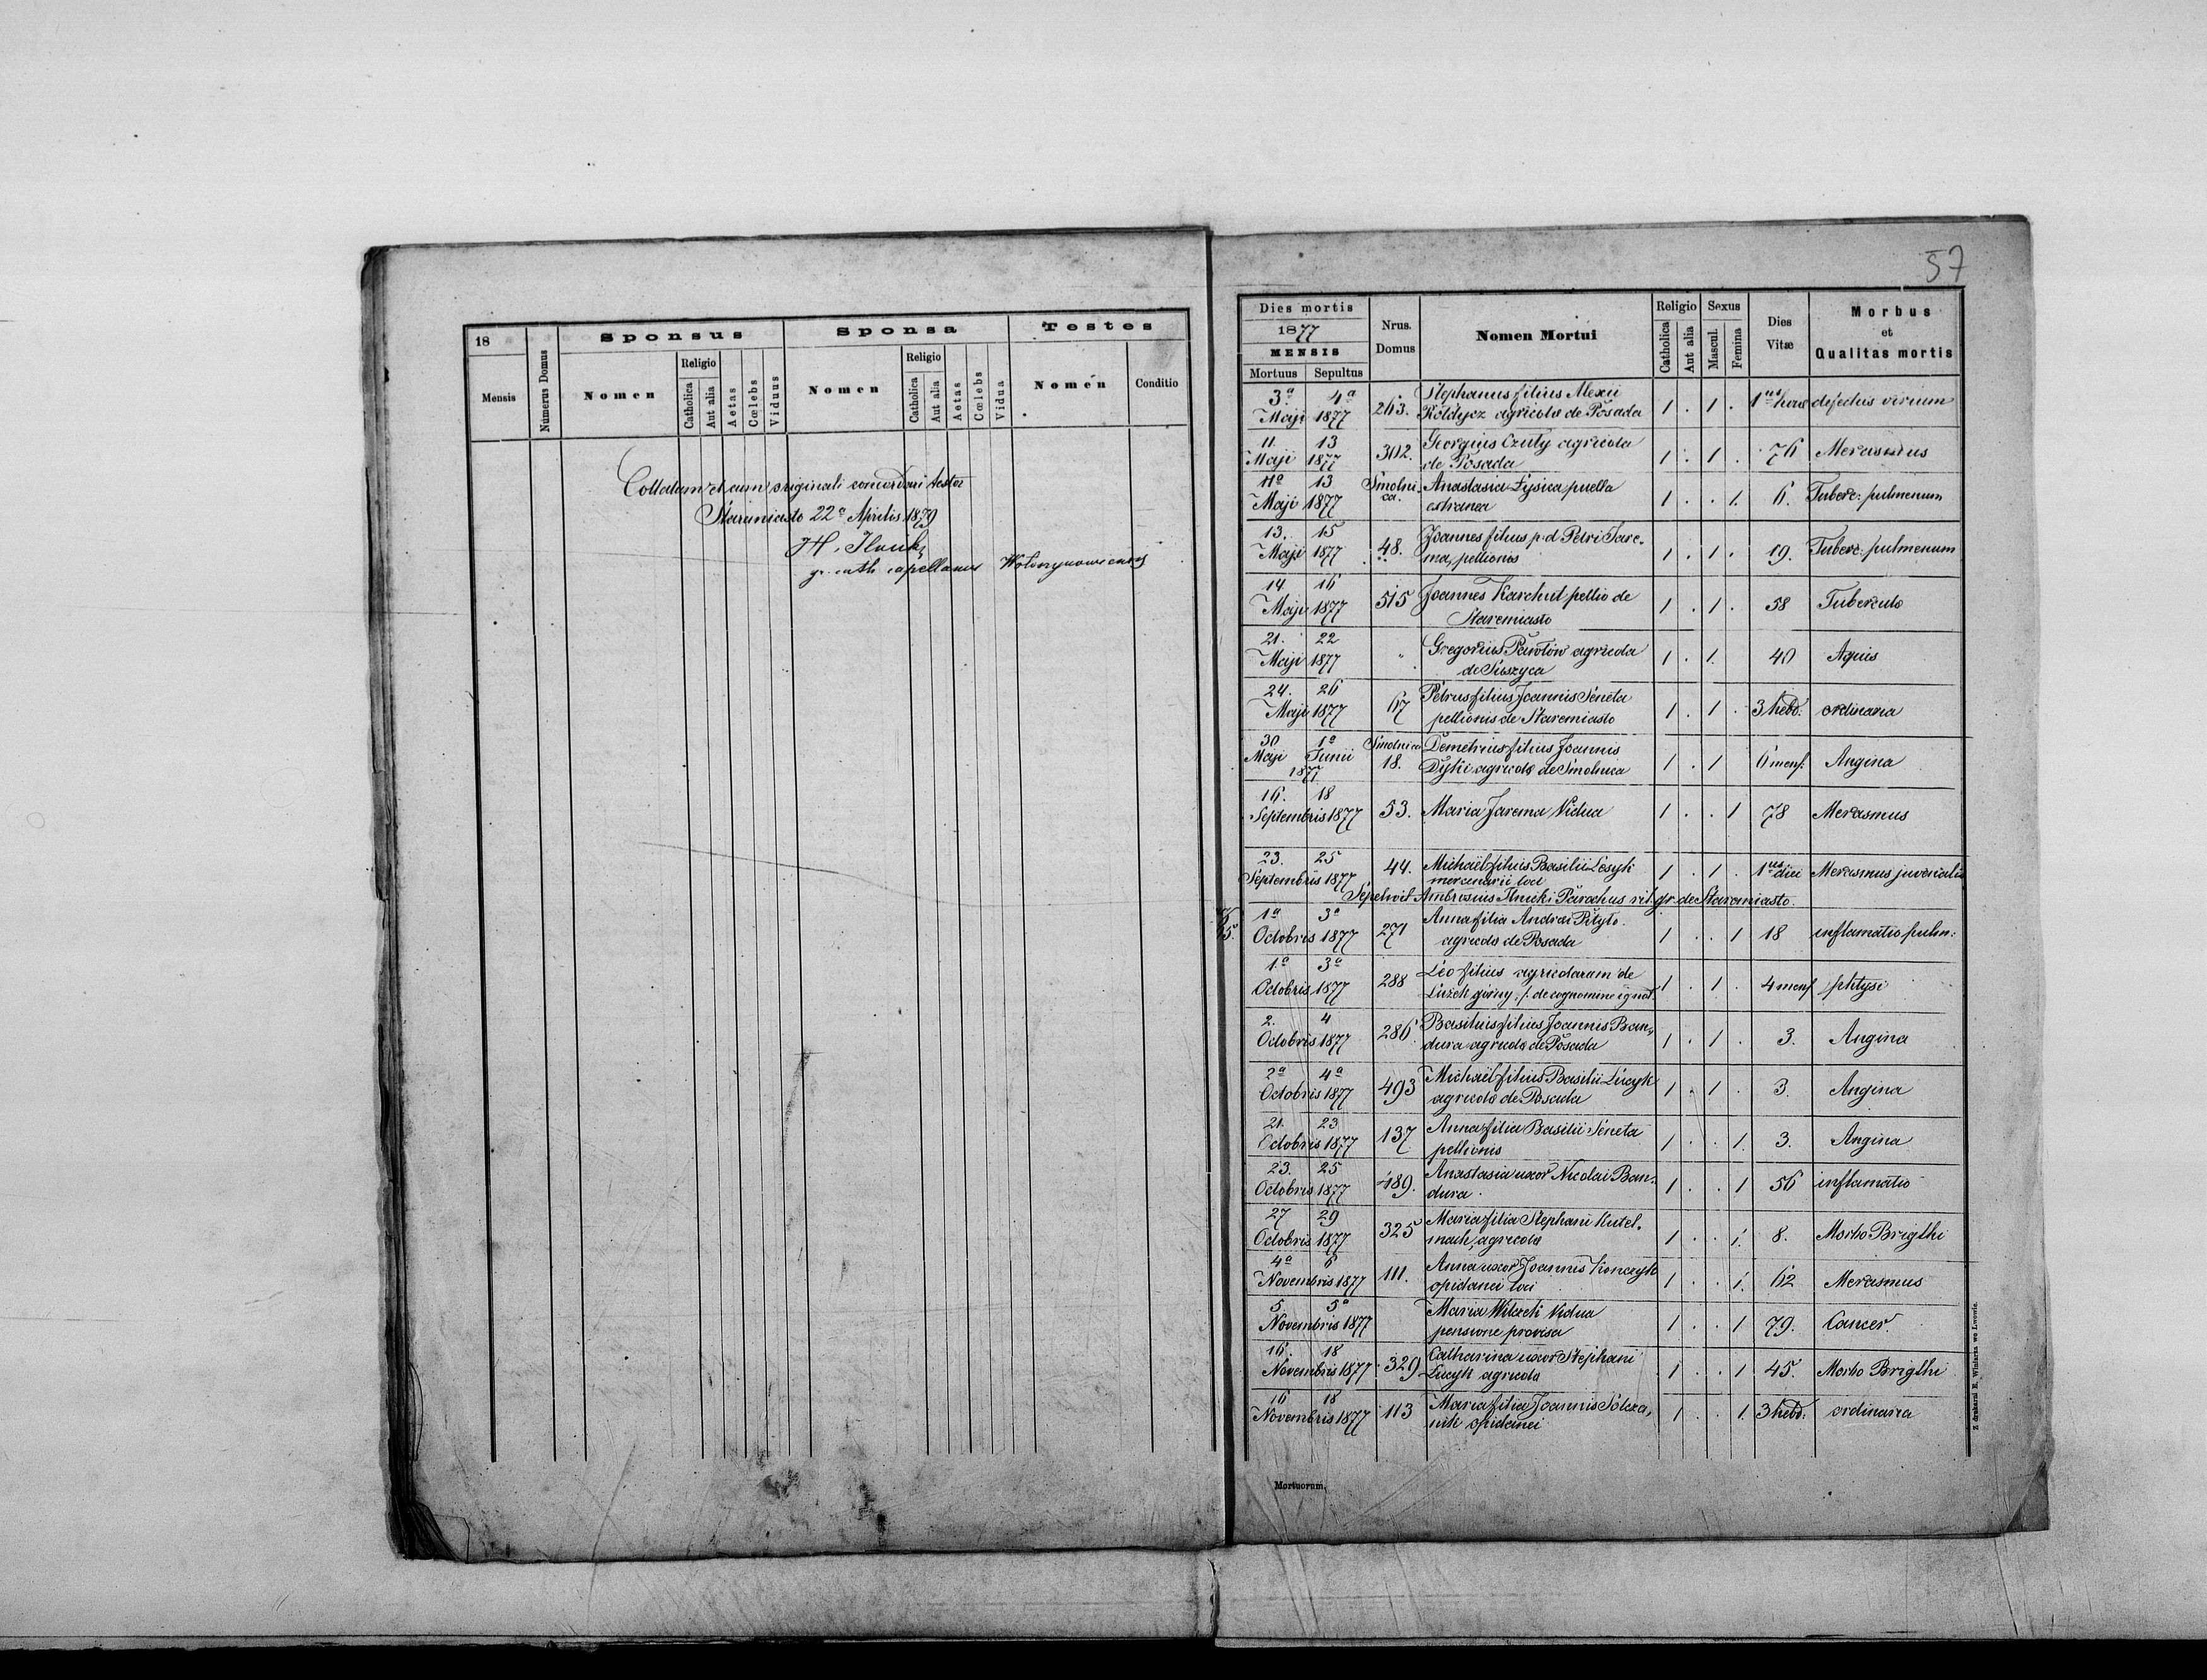 18
Mensis
Numerus Domus
Sponsus
Nomen
Religio
Catholica
Aut alia
Aetas
Cœlebs
Viduus
Sponsa
Nomen
Religio
Catholica
Aut alia
Aetas
Cœlebs
Vidua
Testes
Nomen
Conditio
Collatum et cum originali concordari testor
Staremiasto 22ª Aprilis 1879
gr. cath. capellanus
57
Dies mortis
1877
MENSIS
Mortuus Sepultus
Nrus. Domus
Nomen Mortui
Religio
Catholica
Aut alia
Sexus
Mascul.
Femina
Dies Vitæ
Morbus
et
Qualitas mortis
3ª 4ª Stephanus filius Alexii
Maji 1877 263. Kołdycz agricola de Posada 1 . 1 . 1us hora defectus virium
11. 13 Georgius Czuty agricola
Maji 1877 302. de Posada 1 . 1 . 76 Merasmus
11ª 13 Smolnica. Anastasia Łysica puella
Maji 1877 extranea 1 . . 1. 6. Tuberc: pulmonum
13. 15 Joannes filius p.d Petri Jare-
Maji 1877 48. ma, pellionis 1 . 1 . 19. Tuberc: pulmonum
14. 16 Joannes Karchut pellio de
Maji 1877 515 Staremiasto 1 . 1 . 58 Tuberculo
21. 22 Gregorius Pawłów agricola
Maji 1877 " de Suszyca 1 . 1. 40 Aquis
24. 26 Petrus filius Joannis Seneta
Maji 1877 67 pellionis de Staremiasto 1 . 1 . 3 hebd: ordinaria
30 1ª Smolnica Demetrius filius Joannis
Maji Junii 18. agricola de Smolnica 1 . 1 6 mens. Angina
1877
16. 18
Septembris 1877 53. Maria Jarema Vidua 1 . . 1 78 Merasmus
23. 25 44. Michaël filius Basilii Lesyk
Septembris 1877 mercenarii loci 1 . 1 . 1us diei Merasmus juvenalis
Sepelivit Ambrosius Ilnicki Parochus rit. gr. de Staremiasto.
1ª 3ª Anna filia Andreæ Pityło.
Octobris 1877 271 agricola de Posada 1 . . 1 18 inflamatio pulm:
1.ª 3ª Leo filius agricolarum de
Octobris 1877 288 Łużek górny ./. de cognomine ignot. 1 . 1 . 4 mens phtysi
2. 4 Basilius filius Joannis Ban-
Octobris 1877 286 dura agricola de Posada 1 . 1 . 3. Angina
2ª 4ª Michaël filius Basilii Łucyk
Octobris 1877 493 agricola de Posada 1 . 1 . 3. Angina
21. 23 Anna filia Basilii Seneta
Octobris 1877 137 pellionis 1 . . 1. 3. Angina
23. 25 Anastasia uxor Nicolai Ban-
Octobris 1877 489. dura 1 . . 1 56 inflamatio
27 29 Maria filia Stephani Kutel-
Octobris 1877 325 mach, agricola 1 . . 1. 8. Morbo Brigthi
4ª 6 Anna uxor Joannis Konczyk
Novembris 1877 111. opidanei loci 1 . . 1. 62 Merasmus
5. 5ª Maria Wilczek Vidua
Novembris 1877 pensione provisa 1 . . 1 79. Cancer.
16. 18 Catharina uxor Stephani
Novembris 1877 329 Łucyk agricola 1 . . 1 45. Morbo Brigthi
16 18 Maria filia Joannis
Novembris 1877 113 opidanei 1 . . 1. 3 hebd: ordinaria
Mortuorum.
Z drukarni E. Winiarza we Lwowie.